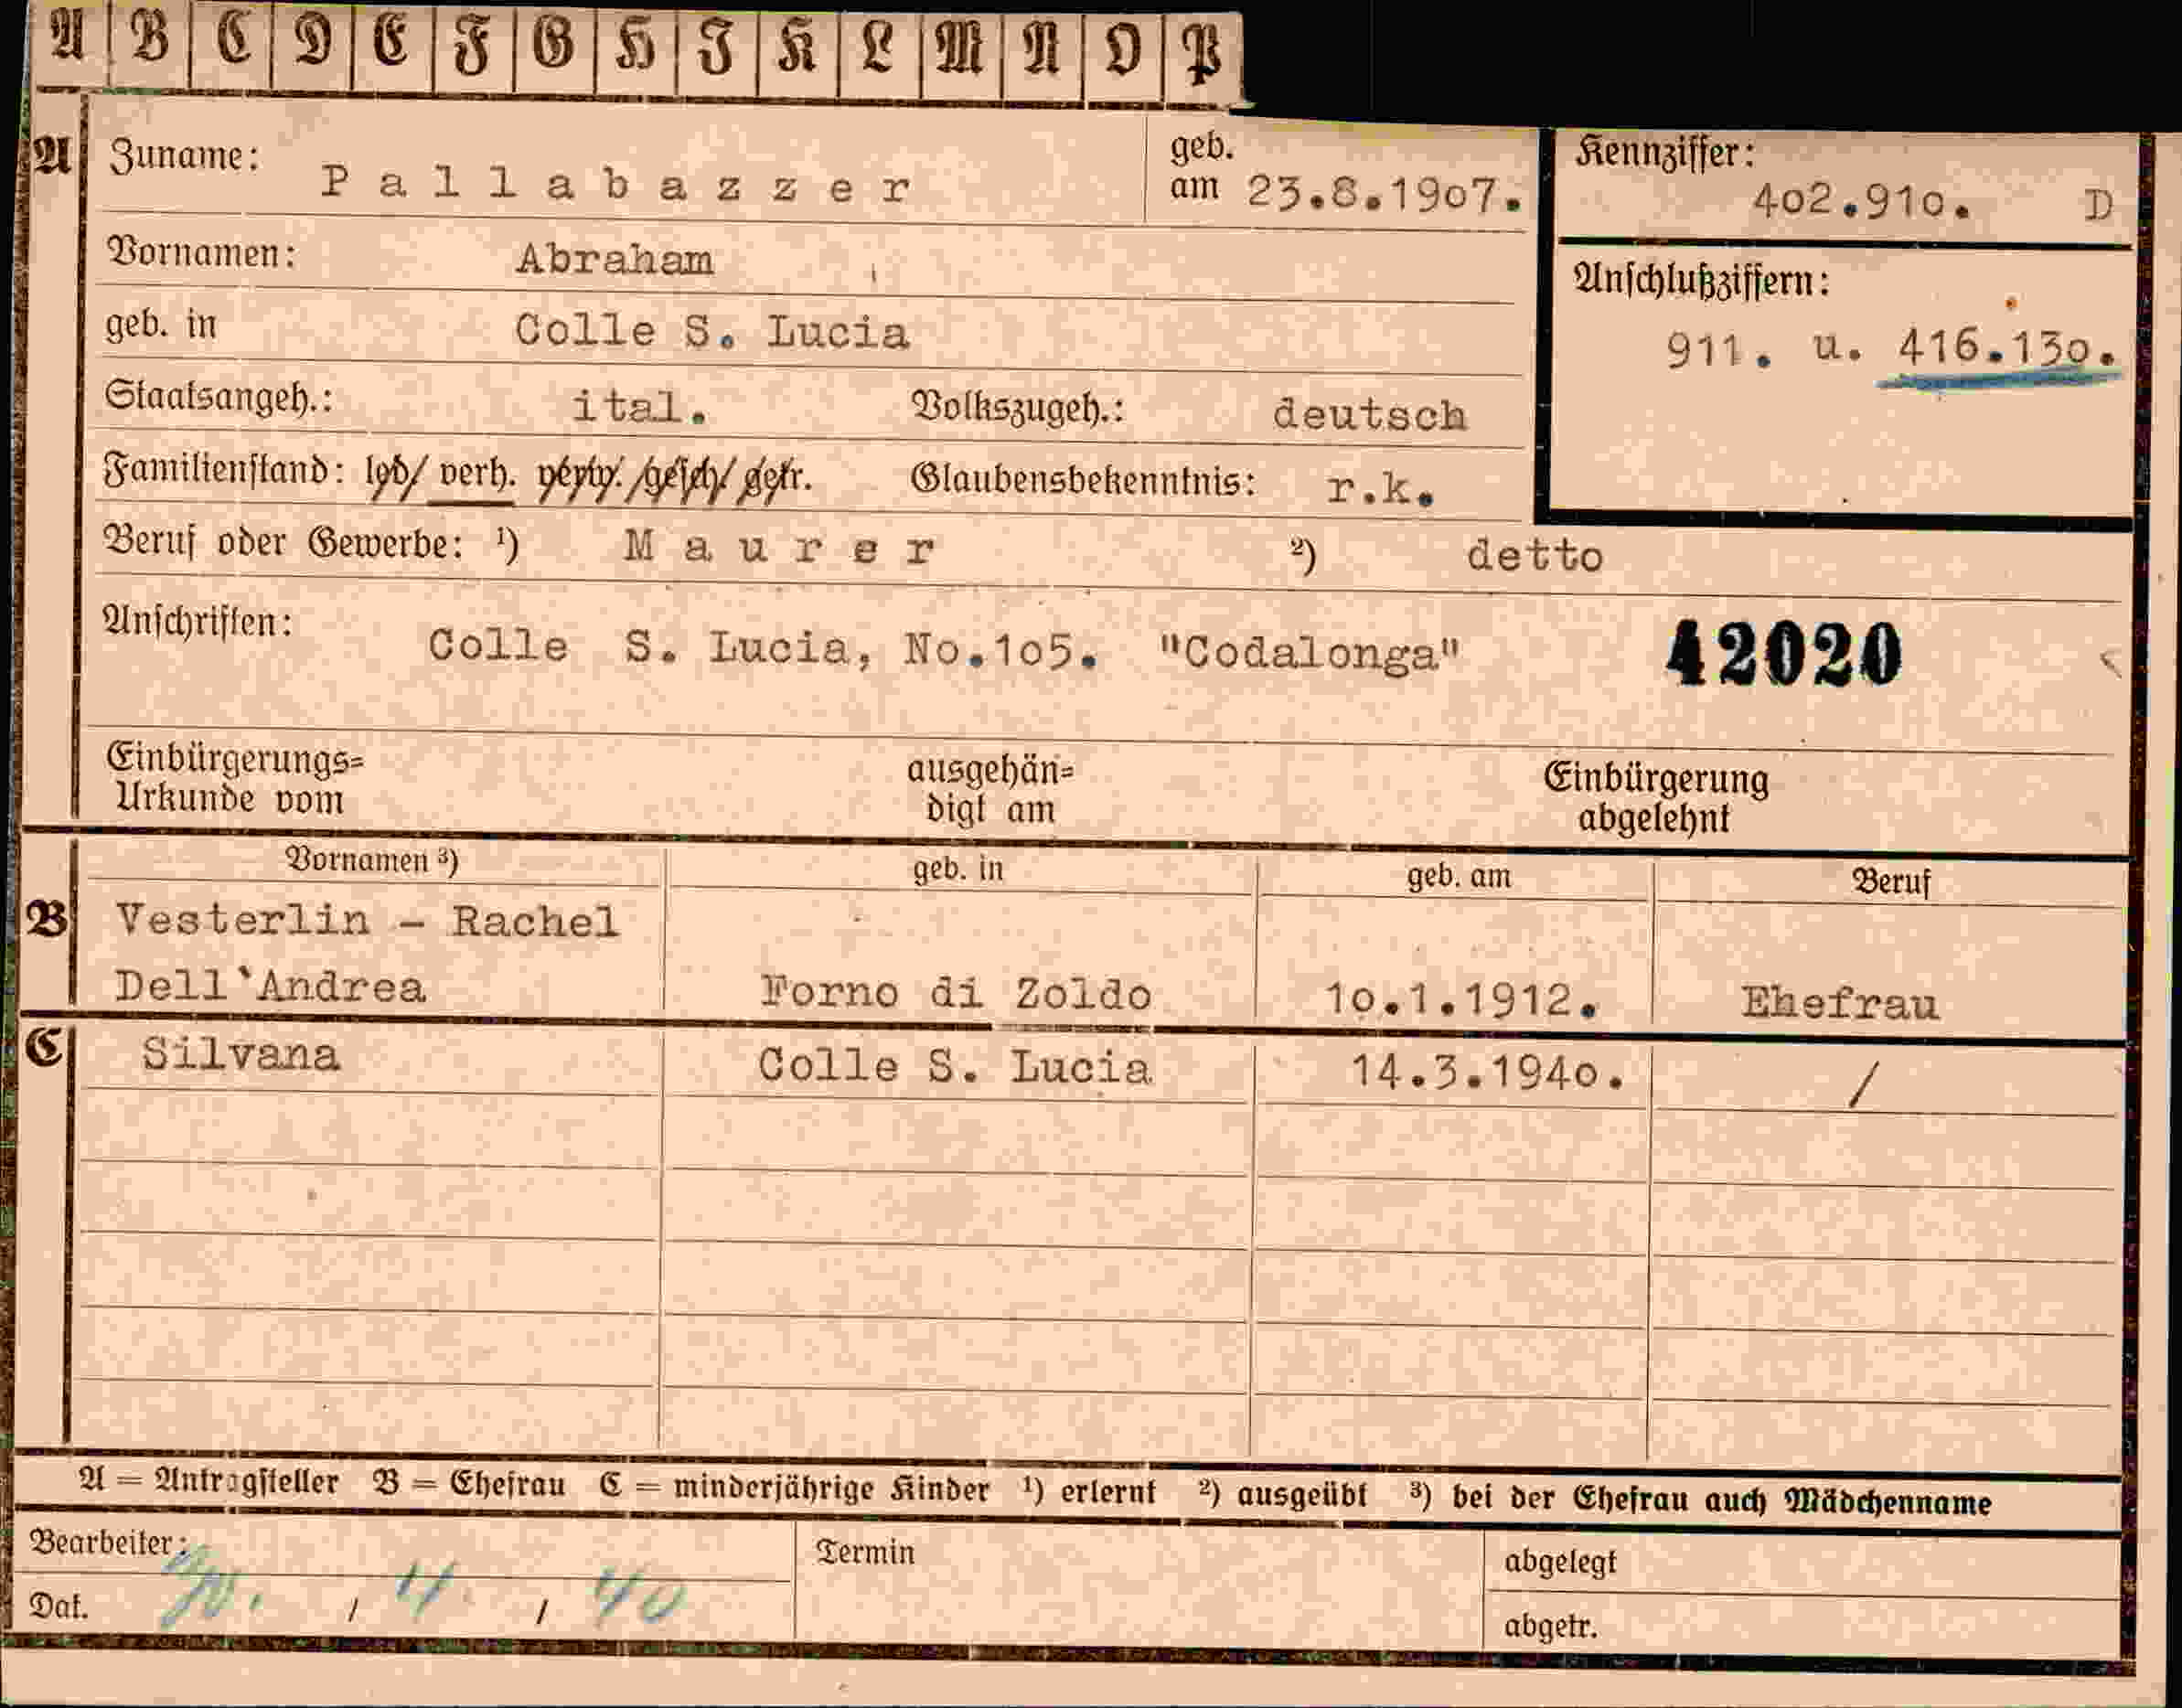 A B C D E F G H I K L M N O P
A Zuname: Pallabazzer geb. am 23.8.1907. Kennziffer: 402.910. D
Vornamen: Abraham
Anschlußziffern: 911. u. 416.130.
geb. in Colle S. Lucia
Staatsangeh.: ital. Volkszugeh.: deutsch
Familienstand: led/ verh. verw./gesch/ getr. Glaubensbekenntnis: r.k.
Beruf oder Gewerbe: ¹) Maurer ²) detto
Anschriften: Colle S. Lucia, No.105. "Codalonga" 42020
Einbürgerungs=
Urkunde vom
ausgehän=
digt am
Einbürgerung
abgelehnt
Vornamen ³) geb. in geb. am Beruf
B Vesterlin - Rachel
Dell'Andrea Forno di Zoldo 10.1.1912. Ehefrau
C Silvana Colle S. Lucia 14.3.1940. /
A = Antragsteller B = Ehefrau C = minderjährige Kinder ¹) erlernt ²) ausgeübt ³) bei der Ehefrau auch Mädchenname
Bearbeiter: Termin abgelegt
Dat. / 4. / 40 abgetr.